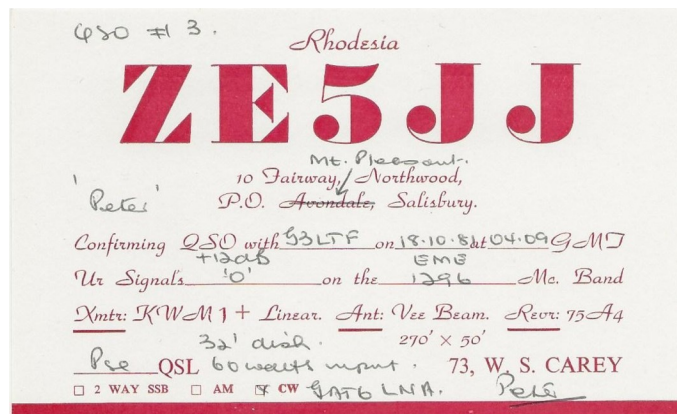 QSO # 3.
Rhodesia
ZE5JJ
Mt. Pleasant.
10 Fairway, Northwood,
'Peter' P.O. Avondale, Salisbury.
Confirming QSO with G3LTF on 18.10.81 at 04.09 GMT
+12dB EME
Ur Signal's 'O' on the 1296 Mc. Band
Xmtr: KWM 1 + Linear. Ant: Vee Beam. Revr: 75A4
32' dish. 270' × 50'
Pse QSL 60 watts input. 73, W. S. CAREY
☐ 2 WAY SSB ☐ AM ☒ CW GAT6 LNA. Peter